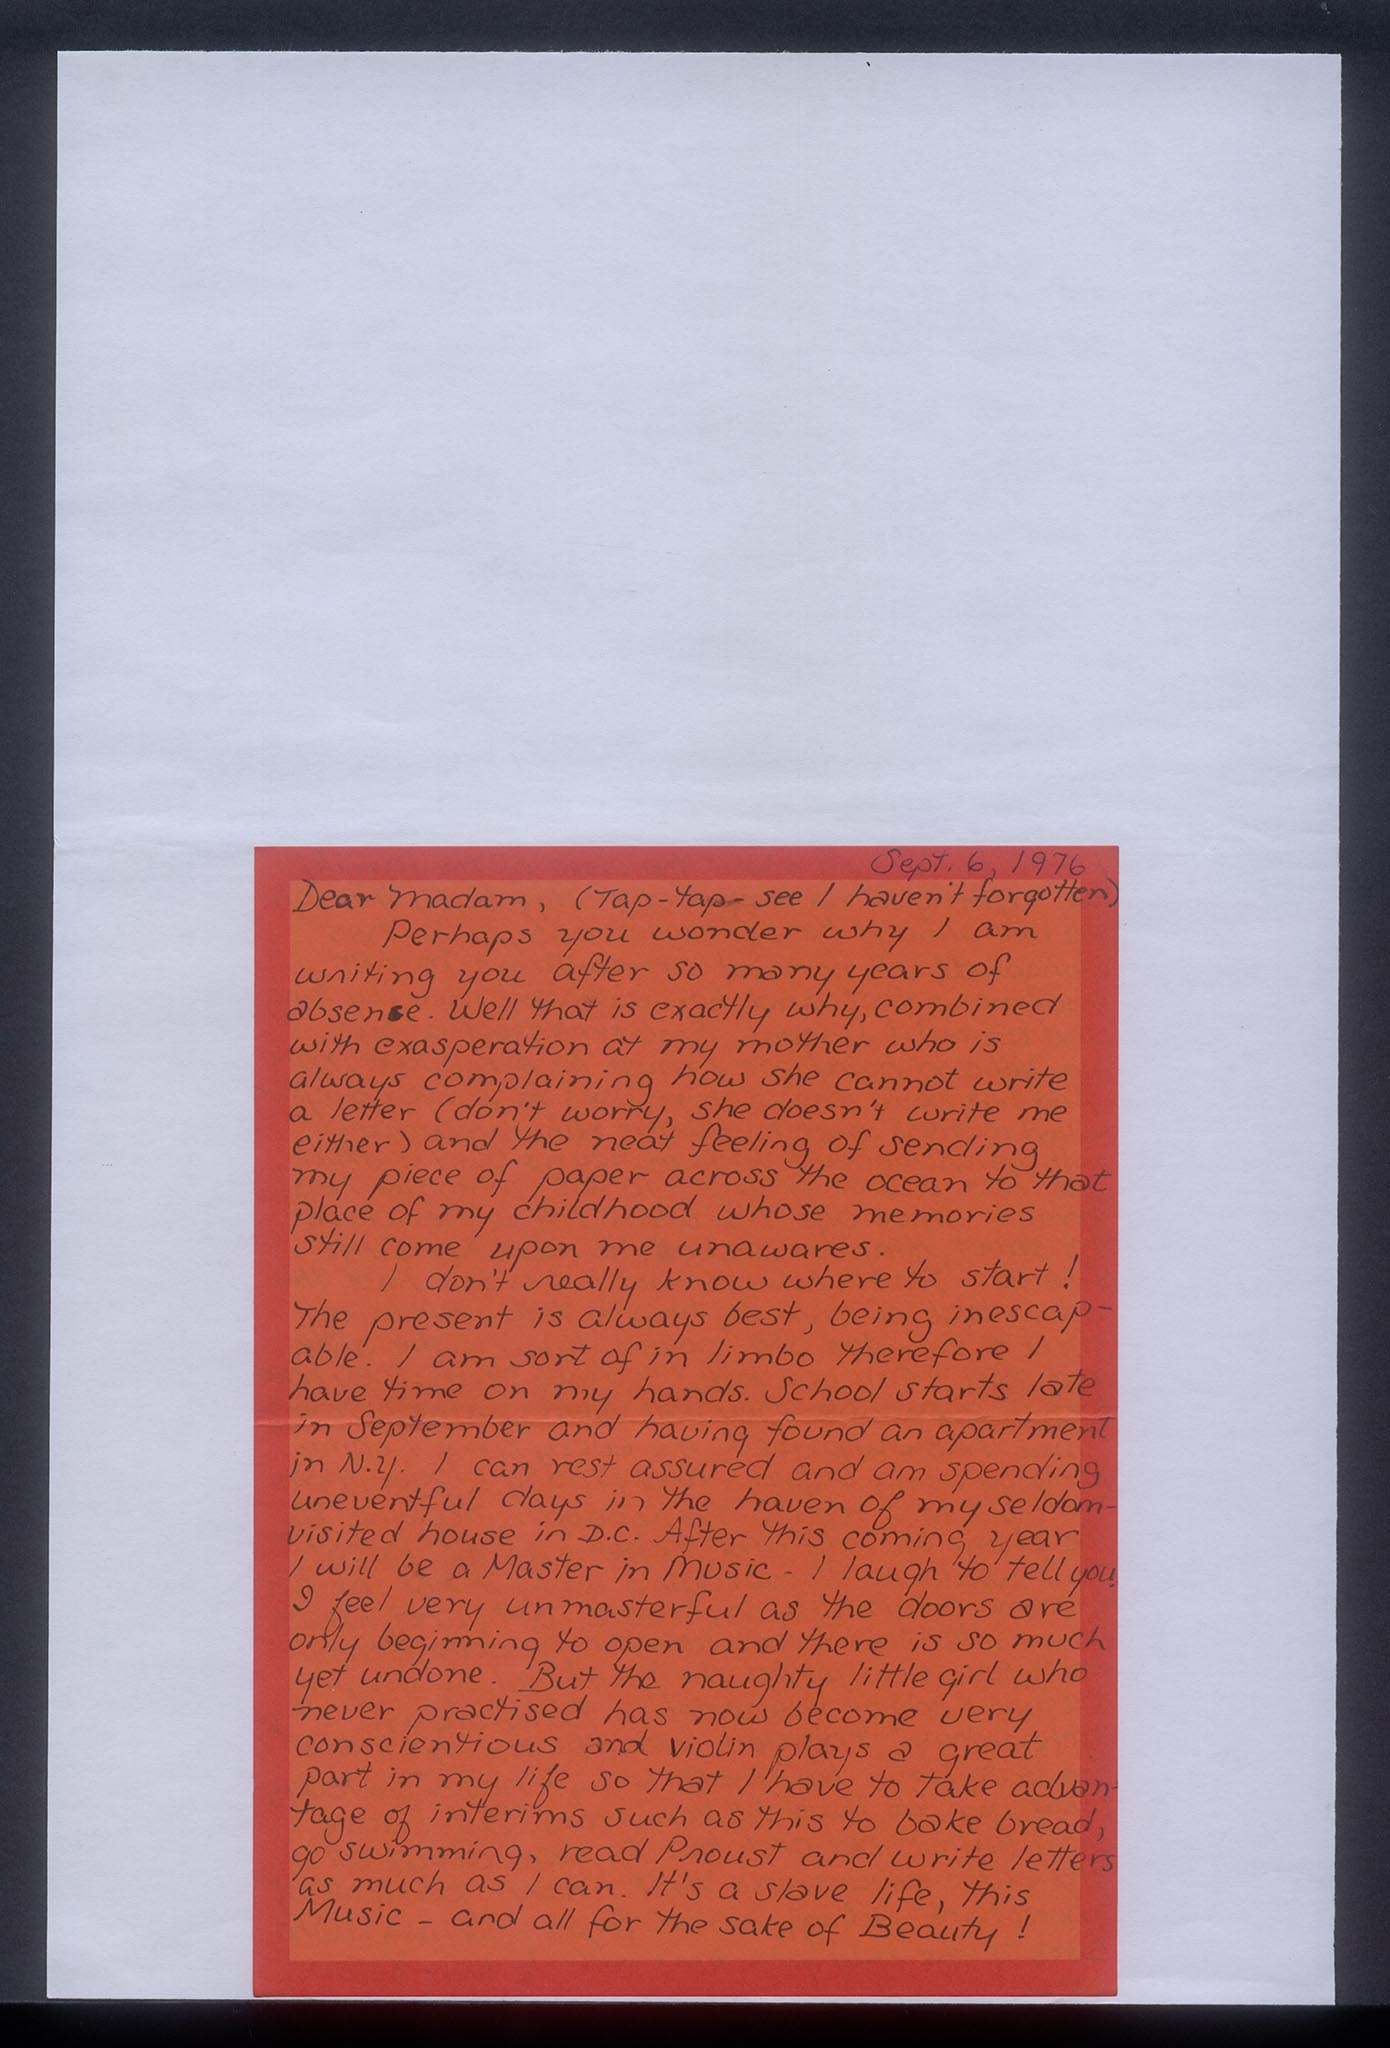 Sept. 6, 1976
Dear Madam, (Tap-tap- see I haven't forgotten)
Perhaps you wonder why I am
writing you after so many years of
absence. Well that is exactly why, combined
with exasperation at my mother who is
always complaining how she cannot write
a letter (don't worry, she doesn't write me
either) and the neat feeling of sending
my piece of paper across the ocean to that
place of my childhood whose memories
still come upon me unawares.
I don't really know where to start!
The present is always best, being inescap-
able. I am sort of in limbo therefore I
have time on my hands. School starts late
in September and having found an apartment
in N.Y. I can rest assured and am spending
uneventful days in the haven of my seldom-
visited house in D.C. After this coming year
I will be a Master in Music - I laugh to tell you.
I feel very unmasterful as the doors are
only beginning to open and there is so much
yet undone. But the naughty little girl who
never practised has now become very
conscientious and violin plays a great
part in my life so that I have to take advan-
tage of interims such as this to bake bread,
go swimming, read Proust and write letters
as much as I can. It's a slave life, this
Music - and all for the sake of Beauty!